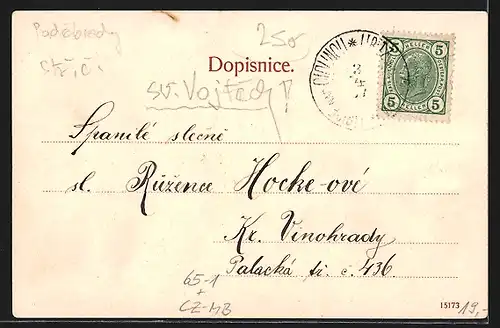 Poděbrady
250
Dopisnice.
sv. Vojtěch !
5 HELLER 5
5 HELLER 5
Spanilé slečně
sl. Růžence Hocke-ové
Kr. Vinohrady
Palacká tř. č. 436.
65-1
+
CZ-HB
15173
19,-